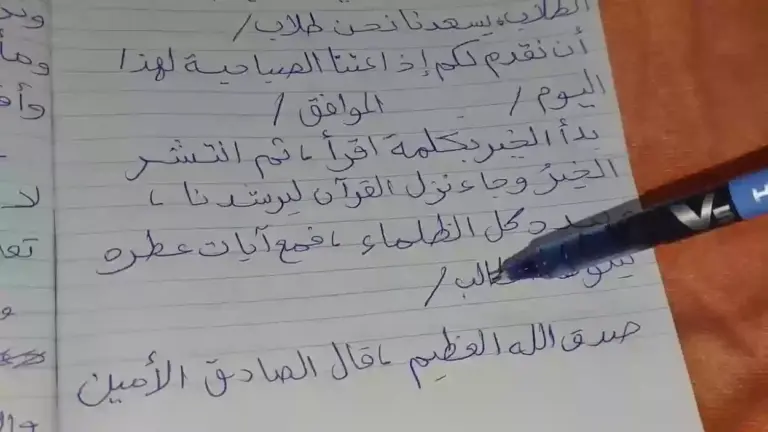 الطلاب، يسعدنا نحن طلاب /
أن نقدم لكم إذاعتنا الصباحية لهذا
اليوم / الموافق /
بدأ الخير بكلمة اقرأ، ثم انتشر
الخيرُ وجاء نزل القرآن ليرشدنا،
كل الظلماء، فمع آيات عطره
/
صدق الله العظيم، قال الصادق الأمين
V5